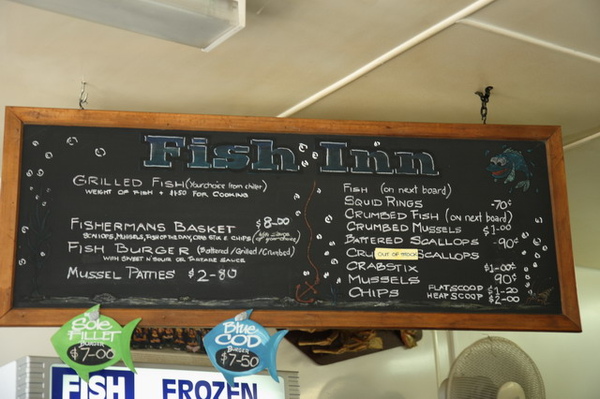 Fish Inn
GRILLED FISH (Your choice from chiller)
WEIGHT OF FISH + $1.50 FOR COOKING
FISHERMANS BASKET $8-00
CHIPS
FISH BURGER (Battered/Grilled/Crumbed)
WITH SWEET N SOUR OR TARTARE SAUCE
MUSSEL PATTIES $2-80
FISH (on next board)
SQUID RINGS -70¢
CRUMBED FISH (on next board)
CRUMBED MUSSELS $1-00
BATTERED SCALLOPS -90¢
CRU OUT OF STOCK SCALLOPS
CRABSTIX $1-00¢
MUSSELS 90¢
CHIPS FLAT SCOOP $1-20
HEAP SCOOP $2-00
Sole
FILLET
BURGER
$7-00
Blue
COD
BURGER
$7-50
FISH FROZEN